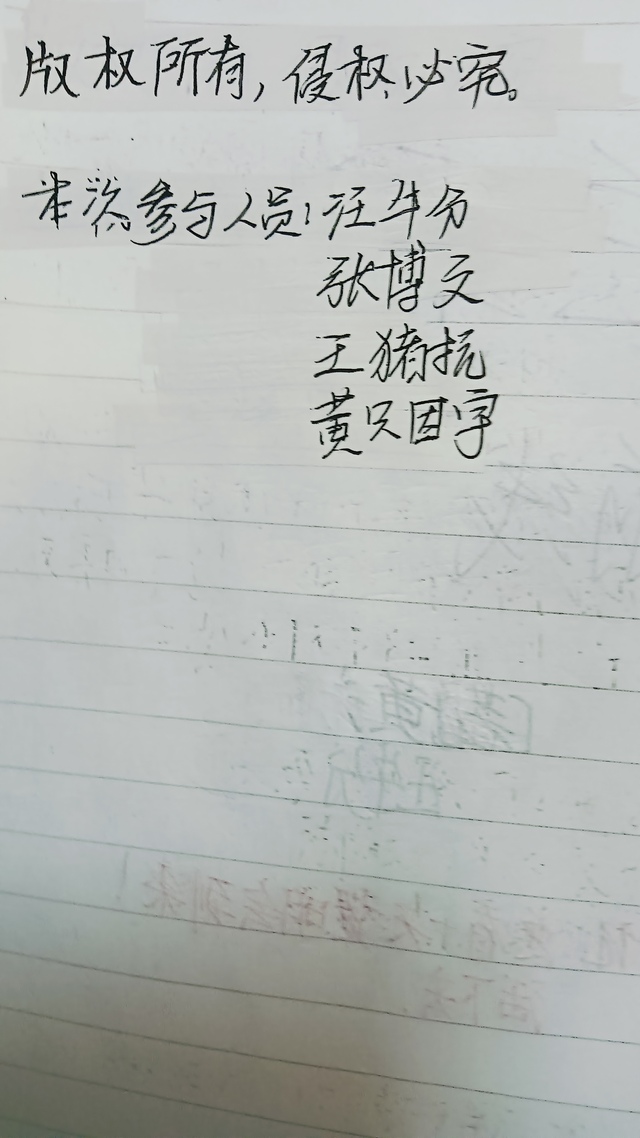 版权所有，侵权必究。
本次参与人员：汪牛分
张博文
王猪抗
黄只因字